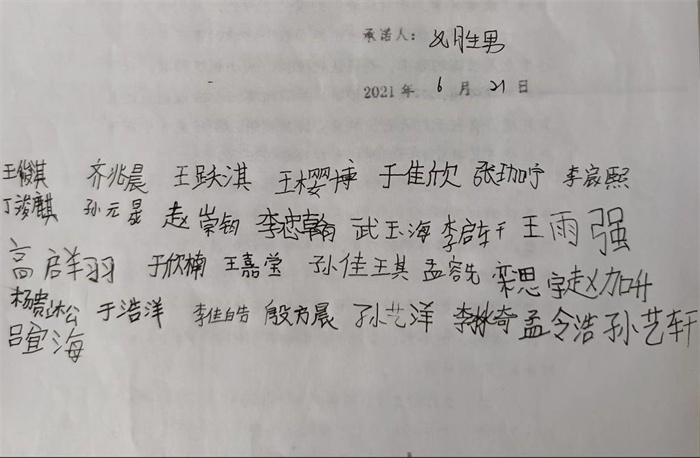 承诺人: 胜男
2021 年 6 月 21 日
王俊淇 齐兆晨 王跃淇 王樱博 于佳欣 张珈宁 李宸熙
丁浚麒 孙元晟 赵崇钧 李忠翰 武玉海 李启轩 王雨强
高群羽 于欣楠 王嘉莹 孙佳琪 孟宪 栾思宇 赵加升
杨贵淞 于浩洋 李佳皓 殷方晨 孙艺洋 李林奇 孟令浩 孙艺轩
吕宜海